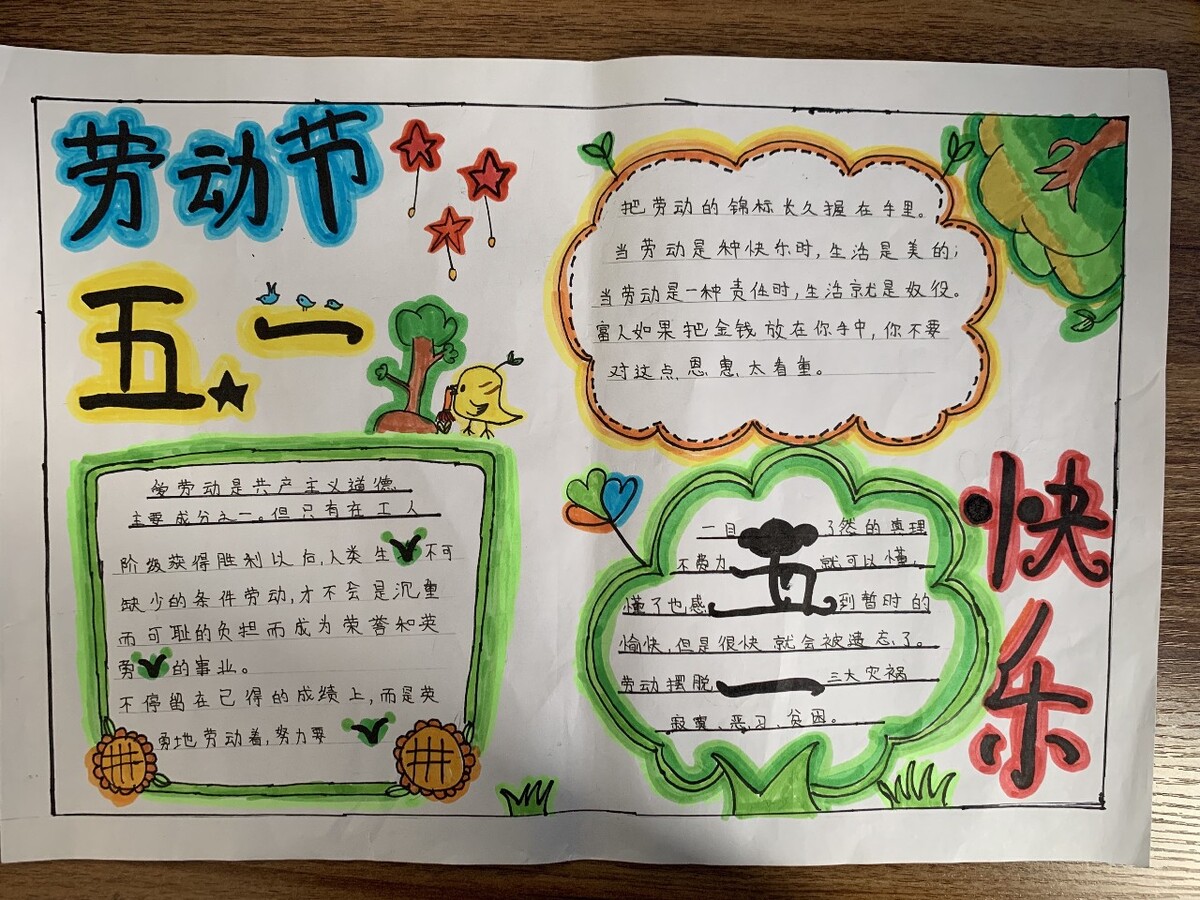 劳动节
五一
把劳动的锦标长久握在手里。
当劳动是种快乐时,生活是美的;
当劳动是一种责任时,生活就是奴役。
富人如果把金钱放在你手中,你不要
对这点恩惠太看重。
爱劳动是共产主义道德
主要成分之一。但只有在工人
阶级获得胜利以后,人类生 不可
缺少的条件劳动,才不会是沉重
而可耻的负担而成为荣誉和英
劳 的事业。
不停留在已得的成绩上,而是英
勇地劳动着,努力要
一目 了然的真理
不费力 就可以懂,
懂了也感 到暂时的
愉快,但是很快就会被遗忘了。
劳动摆脱 三大灾祸
寂寞、恶习、贫困。
五
一
快乐